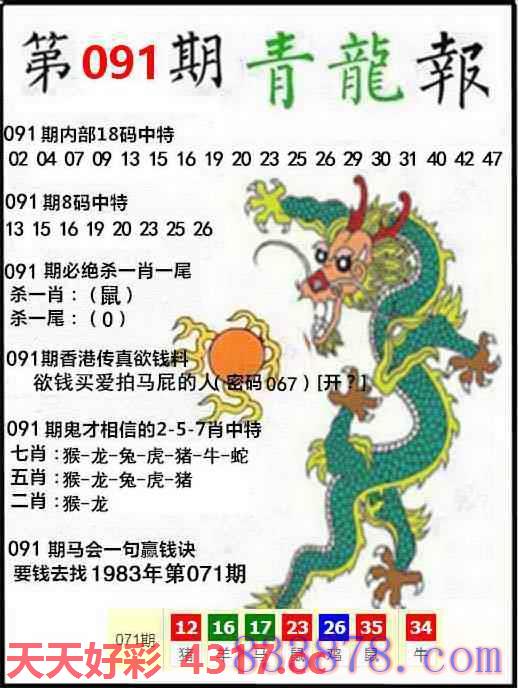 第091期 青龍報
091期内部18码中特
02 04 07 09 13 15 16 19 20 23 25 26 29 30 31 40 42 47
091期8码中特
13 15 16 19 20 23 25 26
091 期必绝杀一肖一尾
杀一肖：（鼠）
杀一尾：（0）
091期香港传真欲钱料
欲钱买爱拍马屁的人(密码067)[开?]
091期鬼才相信的2-5-7肖中特
七肖：猴-龙-兔-虎-猪-牛-蛇
五肖：猴-龙-兔-虎-猪
二肖：猴-龙
091 期马会一句赢钱诀
要钱去找1983年第071期
071期 12 16 17 23 26 35 34
猪 羊 马 鼠 鸡 鼠 牛
天天好彩 4317.cc